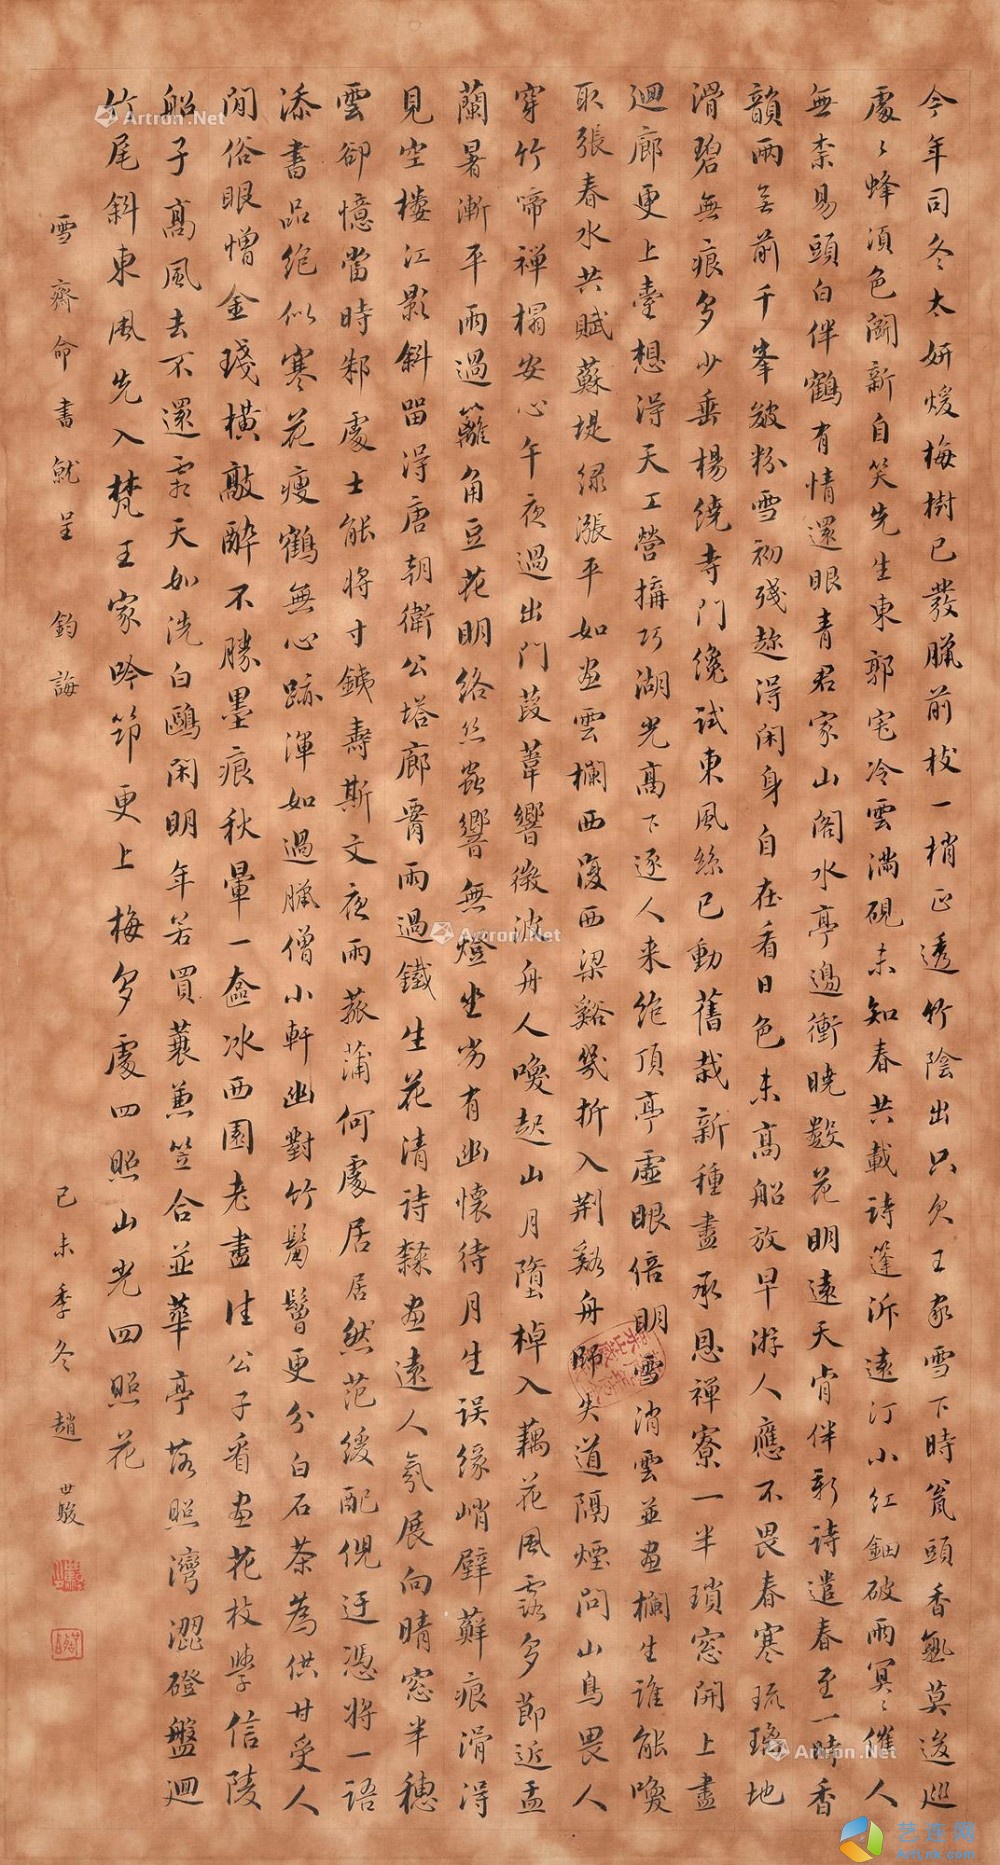 今年司冬太妍煖梅樹已發臘前枝一梢正透竹陰出只欠王家雪下時篱頭香氣莫逡巡
處〻蜂須色闘新自笑先生東郭宅冷雲滿硯未知春共載詩篷泝遠汀小紅鈿破雨冥〻催人
無柰易頭白伴鶴有情還眼青君家山閣水亭邊衝曉數花明遠天肯伴新詩遣春至一時香
韻兩無前千峯皴粉雪初殘趂得闲身自在看日色未高船放早游人應不畏春寒琉璃地
滑碧無痕多少垂楊繞寺門纔試東風絲已動舊栽新種盡承恩禪寮一半瑣窓開上盡
迴廊更上臺想得天工營搆巧湖光高下逐人来绝頂亭虛眼倍明雪消雲並畫欄生誰能喚
取張春水共賦蘇堤绿漲平如畫雲欄西復西梁谿幾折入荆谿舟師失道隔煙問山鳥畏人
穿竹啼禅榻安心午夜過出門葭葦響微波舟人喚起山月墮棹入藕花風露多節近孟
蘭暑漸平雨過籬角豆花明络丝蟲響無燈坐劣有幽懷待月生误缘峭壁蘚痕滑得
見空樓江影斜留得唐朝衛公塔廊霤雨過鐵生花清诗隸畫遠人氛展向晴窓半穗
雲卻憶當時鄴處士能將寸鐵壽斯文夜雨菰蒲何處居居然范缓配倪迂憑將一語
添書品绝似寒花瘦鶴無心跡渾如過臘僧小軒幽對竹鬅鬙更分白石茶為供甘受人
間俗眼憎金琖横敲醉不勝墨痕秋暈一奩冰西園老盡佳公子看畫花枝學信陵
船子高風去不還霜天如洗白鷗闲明年若買蓑兼笠合並華亭落照灣澀磴盤迴
竹尾斜東風先入梵王家吟笻更上梅多處四照山光四照花
雪齋命書就呈 鈞誨 己未季冬 趙世駿
Artron.Net
Artron.Net
Artron.Net
艺连网
ArtLnk.com